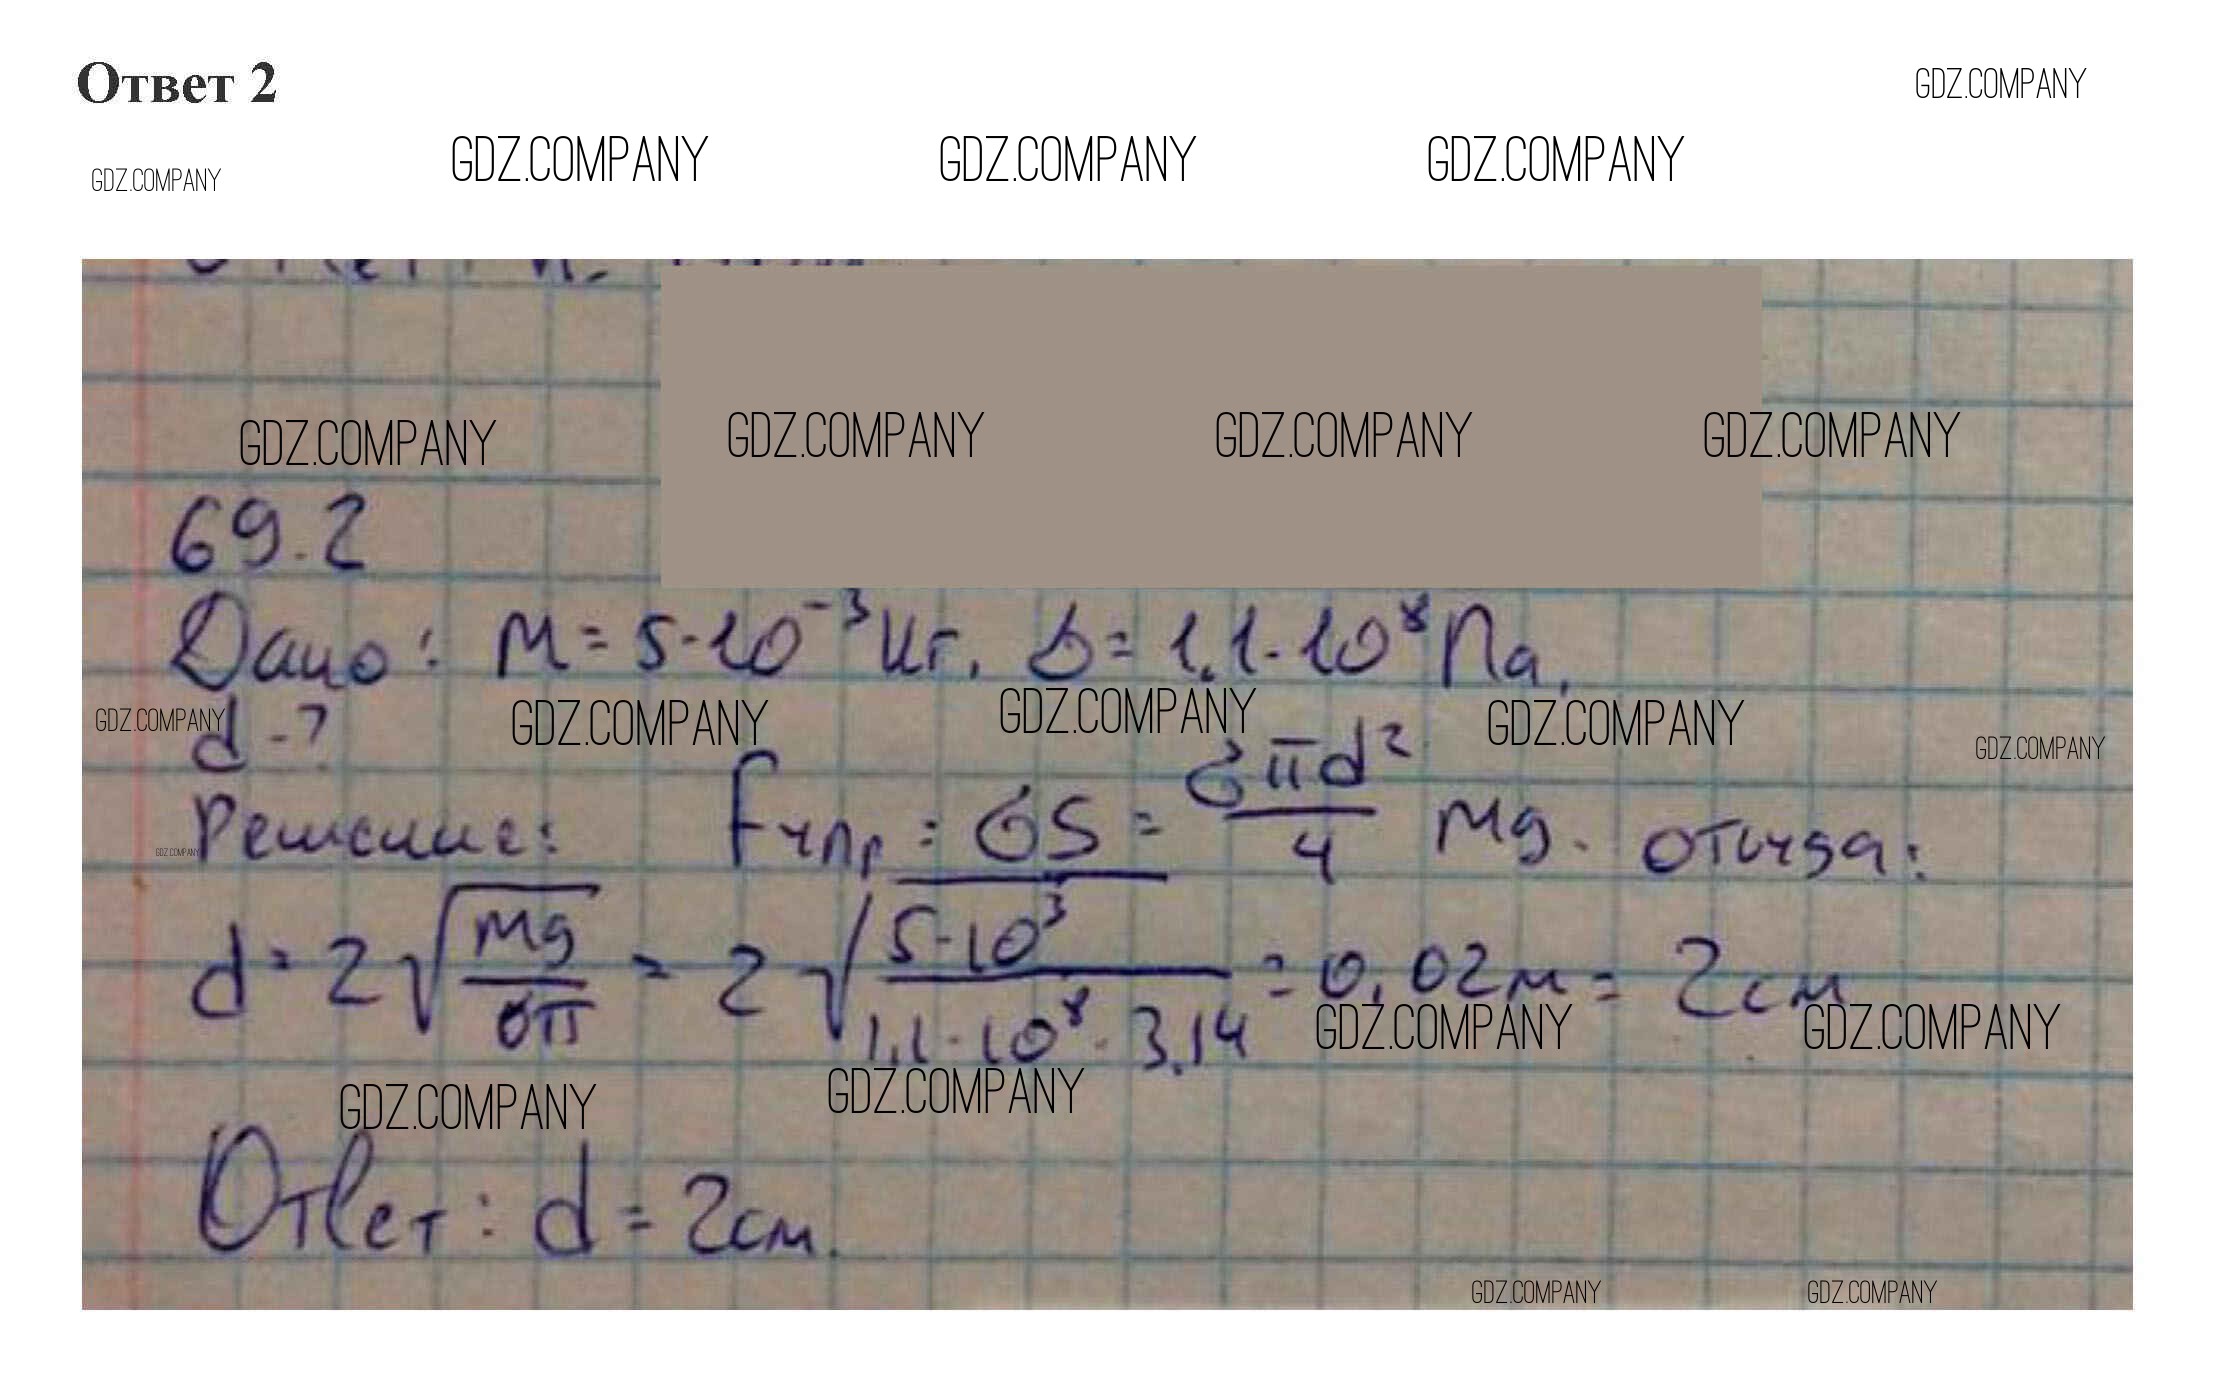 Ответ 2
GDZ.COMPANY
GDZ.COMPANY GDZ.COMPANY GDZ.COMPANY
GDZ.COMPANY
GDZ.COMPANY GDZ.COMPANY GDZ.COMPANY GDZ.COMPANY
69.2
Дано: M = 5·10⁻³ кг, σ = 1,1·10⁸ Па.
GDZ.COMPANY GDZ.COMPANY GDZ.COMPANY GDZ.COMPANY GDZ.COMPANY
d - ?
Решение: Fупр = σS = σπd²/4 Mg. откуда:
GDZ.COMPANY
d = 2√(Mg/σπ) = 2√(5·10³/1,1·10⁸·3,14) = 0,02м = 2см
GDZ.COMPANY GDZ.COMPANY
GDZ.COMPANY GDZ.COMPANY
Ответ: d = 2см.
GDZ.COMPANY GDZ.COMPANY